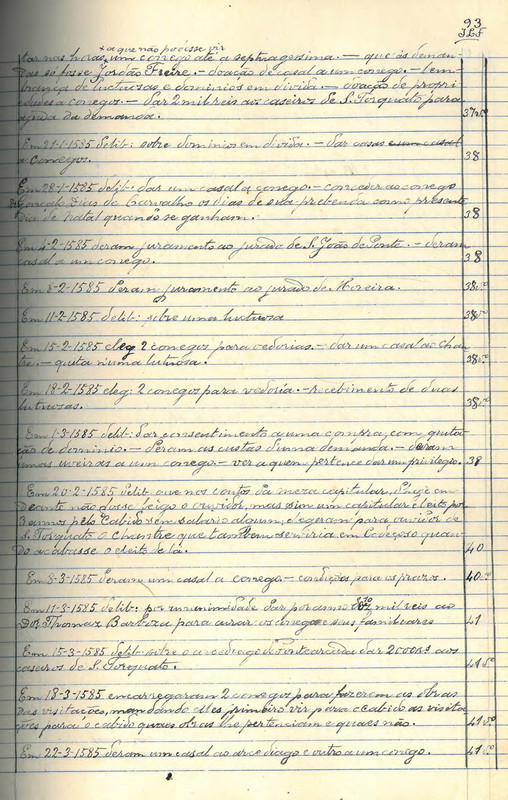 93
JLF
x a que não podésse vir
tar nas horas, um conego até a septuagessima. — que ás deman-
das só fosse Jordão Freire. — doação de casal a um conego. — lem-
brança de luctuosas e dominios em divida. — doação de propri-
edades a conegos. — dar 2 mil reis aos caseiros de S. Torquato para
ajuda da demanda. 37 vº
Em 21-1-1585 delib: sobre dominios em divida. — dar casas
a conegos. 38
Em 28-1-1585 delib: dar um casal a conego. — conceder ao conego
Gonçalo Dias de Carvalho os dias de sua prebenda como presente
dia de Natal quando se ganham. 38
Em 4-2-1585 deram juramento ao jurado de S. João de Ponte. — deram
casal a um conego. 38
Em 8-2-1585 deram juramento ao jurado de Moreira. 38 vº
Em 11-2-1585 delib: sobre uma luctuosa 38 vº
Em 15-2-1585 eleg 2 conegos para vedorias. — dar um casal ao Chan-
tre. — quita n'uma lutuosa. 38 vº
Em 18-2-1585 eleg: 2 conegos para vedoria. — recebimento de duas
lutuosas. 38 vº
Em 1-3-1585 delib: dar consentimento a uma compra, com quita-
ção de dominio. — deram as custas d'uma demanda. — deram
umas uveiras a um conego — ver a quem pertence dar um privilegio. 38
Em 20-2-1585 delib. que nos contos da meza capitular, d'hoje em
deante não fosse leigo o ouvidor, mas sim um capitular eleito por
3 annos pelo Cabido sem salario algum, elegeram para ouvidor de
S. Torquato o Chantre que tambem serviria em Codeçoso quan-
do acabasse o eleito de lá. 40
Em 8-3-1585 deram um casal a conego. — condições para os prazos. 40 vº
Em 11-3-1585 delib: por unanimidade dar por anno mil reis ao
Dor Thomaz Barboza para curar os conegos e seus familiares 41
Em 15-3-1585 delib: sobre o arcediago de Fontearcada dar 2000 rs aos
caseiros de S. Torquato. 41 vº
Em 18-3-1585 encarregaram 2 conegos para fazerem as obras
das visitações, mandando elles primeiro vir para o Cabido as visita-
ções para o cabido quaes obras lhe pertenciam e quaes não. 41 vº
Em 22-3-1585 deram um casal ao arcediago e outro a um conego. 41 vº